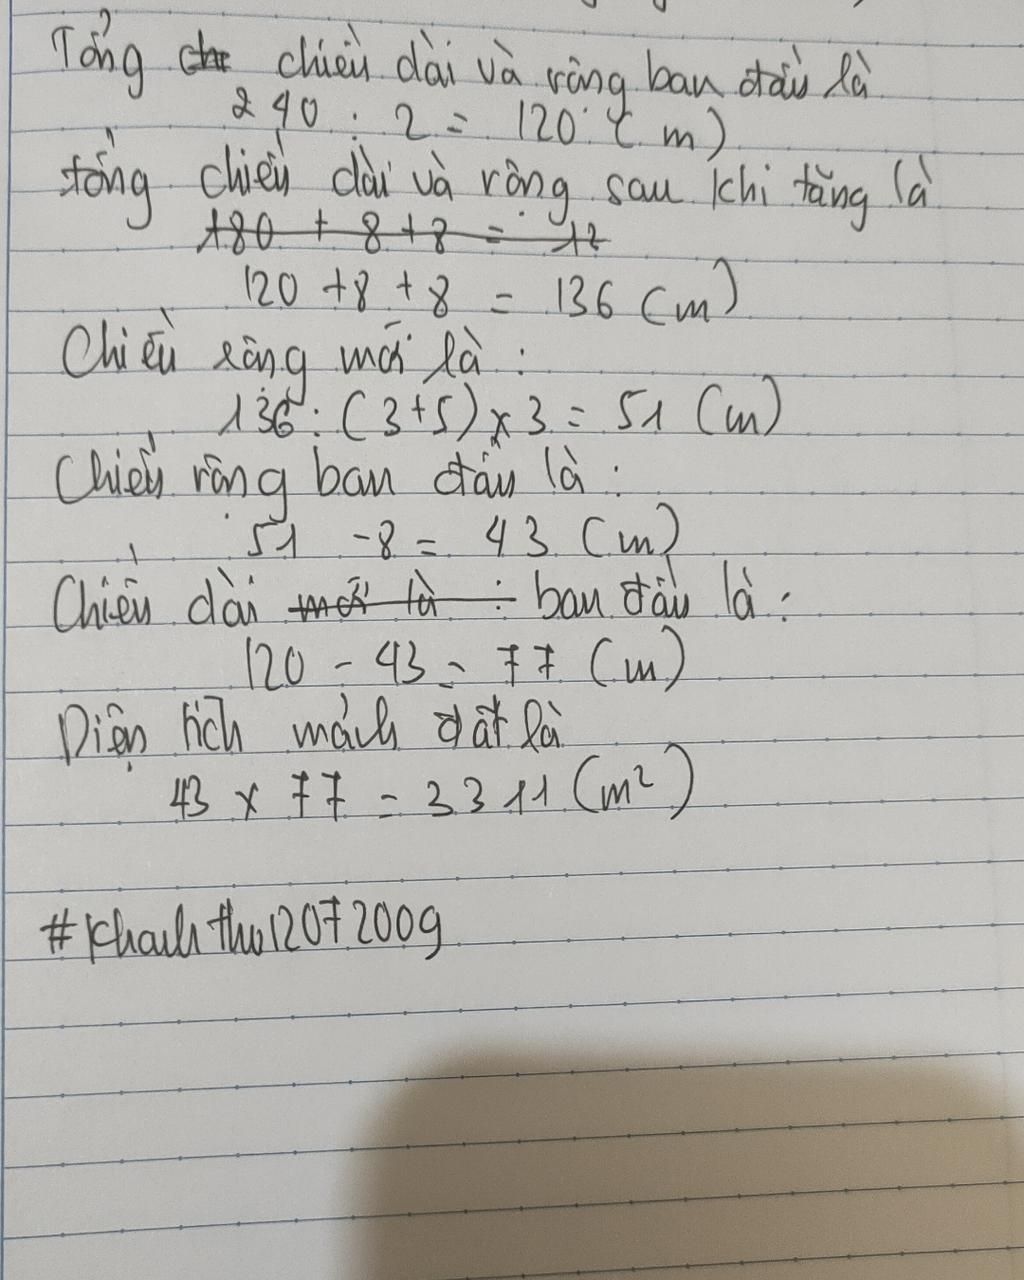 Tổng chiều dài và rộng ban đầu là
240 : 2 = 120 (m)
tổng chiều dài và rộng sau khi tăng là
180 + 8 + 8 = 12
120 + 8 + 8 = 136 (m)
Chiều rộng mới là :
136 : (3+5) x 3 = 51 (m)
Chiều rộng ban đầu là :
51 - 8 = 43 (m)
Chiều dài mới là : ban đầu là :
120 - 43 = 77 (m)
Diện tích mảnh đất là
43 x 77 = 3311 (m²)
#Khanhthu12072009